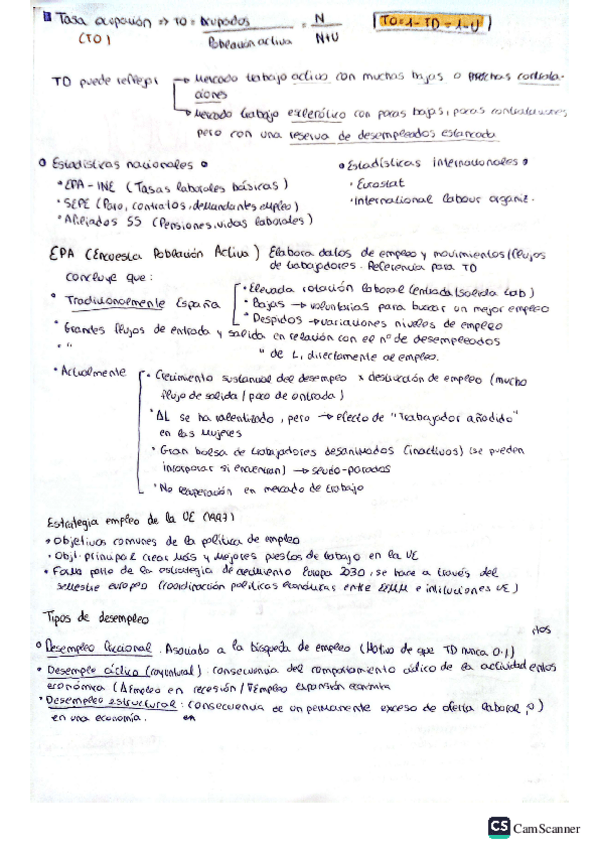 Tasa ocupación => TO = Ocupados / Población activa = N / N+U   TO = 1 - TD = 1 - U
(TO)
TD puede reflejar → Mercado trabajo activo con muchas bajas o muchas contrata-
ciones
→ Mercado trabajo esclerótico con pocas bajas, pocas contrataciones
pero con una reserva de desempleados estancada
Estadísticas nacionales
• EPA - INE (Tasas laborales básicas)
• SEPE (Paro, contratos, demandantes empleo)
• Afiliados SS (Pensiones, vidas laborales)
Estadísticas internacionales
• Eurostat
• International labour organiz.
EPA (Encuesta Población Activa) Elabora datos de empleo y movimientos/flujos
de trabajadores. Referencia para TD
Concluye que:
• Tradicionalmente España
• Elevada rotación laboral (entrada/salida lab)
• Bajas → voluntarias para buscar un mejor empleo
• Despidos → variaciones niveles de empleo
• Grandes flujos de entrada y salida en relación con el nº de desempleados
• " " de L, directamente al empleo.
• Actualmente
• Crecimiento sustancial del desempleo x destrucción de empleo (mucho
flujo de salida / poco de entrada)
• ΔL se ha ralentizado, pero → efecto de "Trabajador añadido"
en las mujeres
• Gran bolsa de trabajadores desanimados (inactivos) (se pueden
incorporar si encuentran) →
• No recuperación en mercado de trabajo
Estrategia empleo de la UE (1997)
• Objetivos comunes de la política de empleo
• Obj. principal crear más y mejores puestos de trabajo en la UE
• Forma parte de la estrategia de crecimiento Europa 2030, se hace a través del
semestre europeo (coordinación políticas económicas entre EEMM e instituciones UE)
Tipos de desempleo
• Desempleo friccional. Asociado a la búsqueda de empleo (Motivo de que TD nunca 0)
• Desempleo cíclico (coyuntural). consecuencia del comportamiento cíclico de la actividad
económica (Δ en recesión / ∇ expansión económica
• Desempleo estructural: consecuencia de un permanente exceso de oferta laboral
en una economía.
CS CamScanner